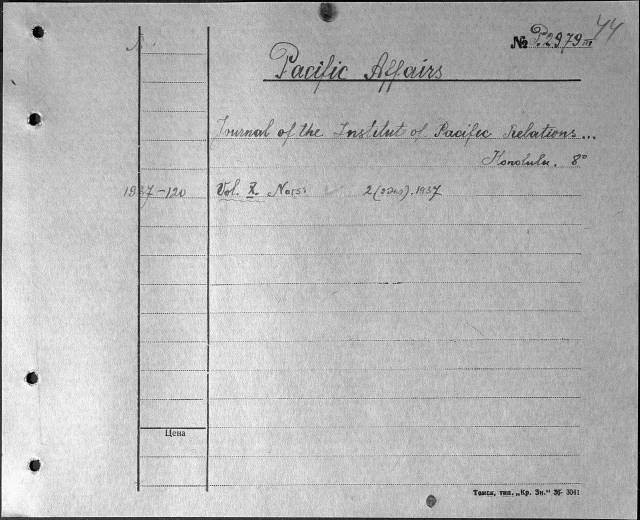 44
№ P.2979 III
Pacific Affairs
Journal of the Institut of Pacific Relations...
Honolulu. 8°
1937-120 Vol. X. No(s) 2 (2 экз). 1937
Цена
Томск, тип. „Кр. Зн." Зк 3041